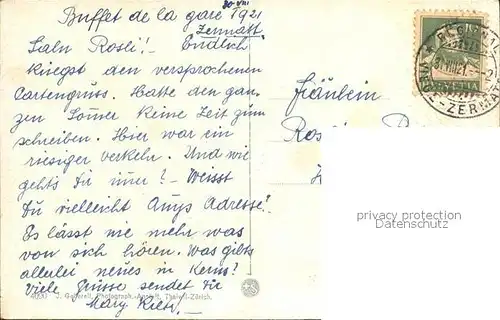 30. VIII
Buffet de la gare 1921
Zermatt
Salu Rosli! – Endlich
kriegst den versprochenen
Cartengruss. Hatte den gan-
zen Somer keine Zeit zum
schreiben. Hier war ein
riesiger verkehr. Und wie
geht's dir imer? – Weisst
Du vielleicht Amys Adresse?
Es lässt nie mehr was
von sich hören. Was gibts
allerlei neues in Kerns?
Viele Grüsse sendet Dir
Mary
Fräulein
HELVETIA
VIÈGE-ZERMATT
privacy protection
AnsichtskartenVersand.com
4000 J. Gaberell, Photograph.-Anstalt, Thalwil-Zürich.